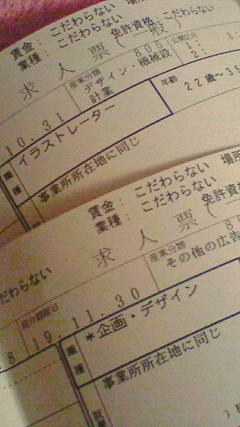 賃金： こだわらない 場所
業種： こだわらない
免許資格
求人票（一般）
産業分類
デザイン・機械設
計業
10.31
年齢
22歳～35
職種
イラストレーター
事業所所在地に同じ
賃金： こだわらない 場
業種： こだわらない
だわらない
求人票（
産業分類
その他の広告
紹介期限日
8 19.11.30
職種
*企画・デザイン
事業所所在地に同じ